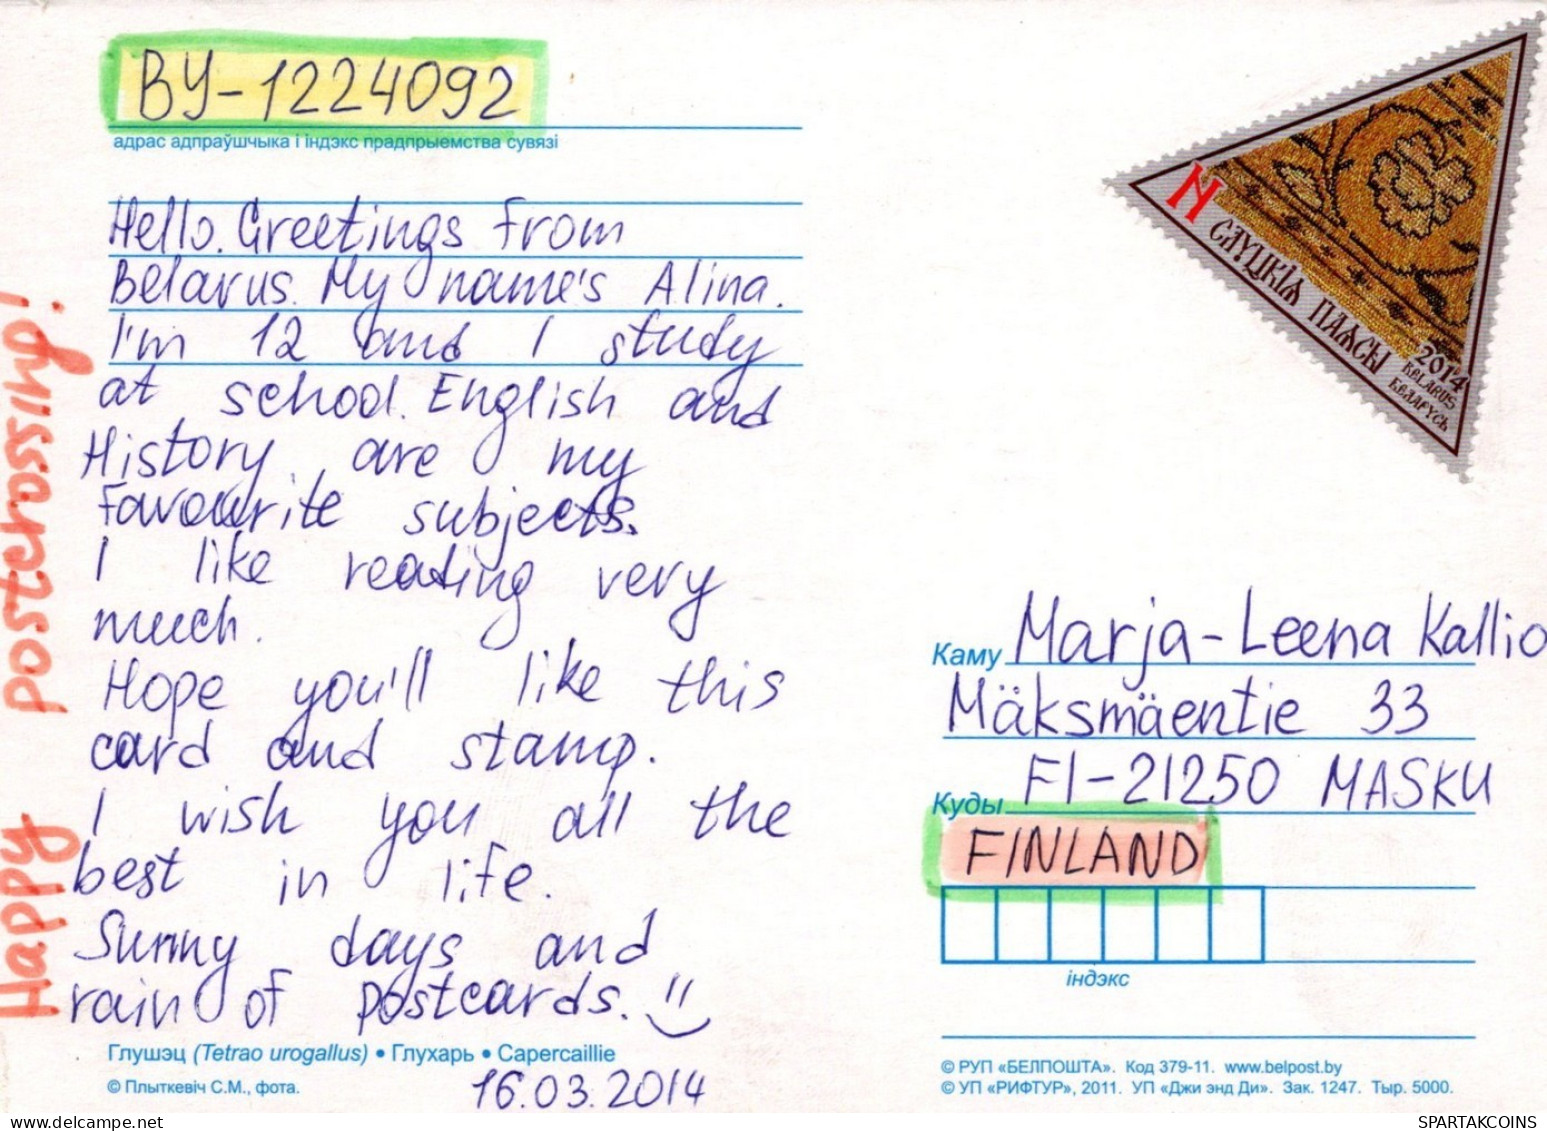 BY-1224092
адрас адпраўшчыка і індэкс прадпрыемства сувязі
Hello. Greetings from
Belarus. My name's Alina.
I'm 12 and I study
at school. English and
History are my
favourite subjects.
I like reading very
much.
Hope you'll like this
card and stamp.
I wish you all the
best in life.
Sunny days and
rain of postcards.
Happy postcrossing!
Глушэц (Tetrao urogallus) • Глухарь • Capercaillie
© Плыткевіч С.М., фота.
16.03.2014
N
СЛУЦКІЯ ПАЯСЫ
2014
BELARUS
БЕЛАРУСЬ
Каму Marja-Leena Kallio
Mäksmäentie 33
Куды FI-21250 MASKU
FINLAND
індэкс
© РУП «БЕЛПОШТА». Код 379-11. www.belpost.by
© УП «РИФТУР», 2011. УП «Джи энд Ди». Зак. 1247. Тыр. 5000.
delcampe.net
SPARTAKCOINS